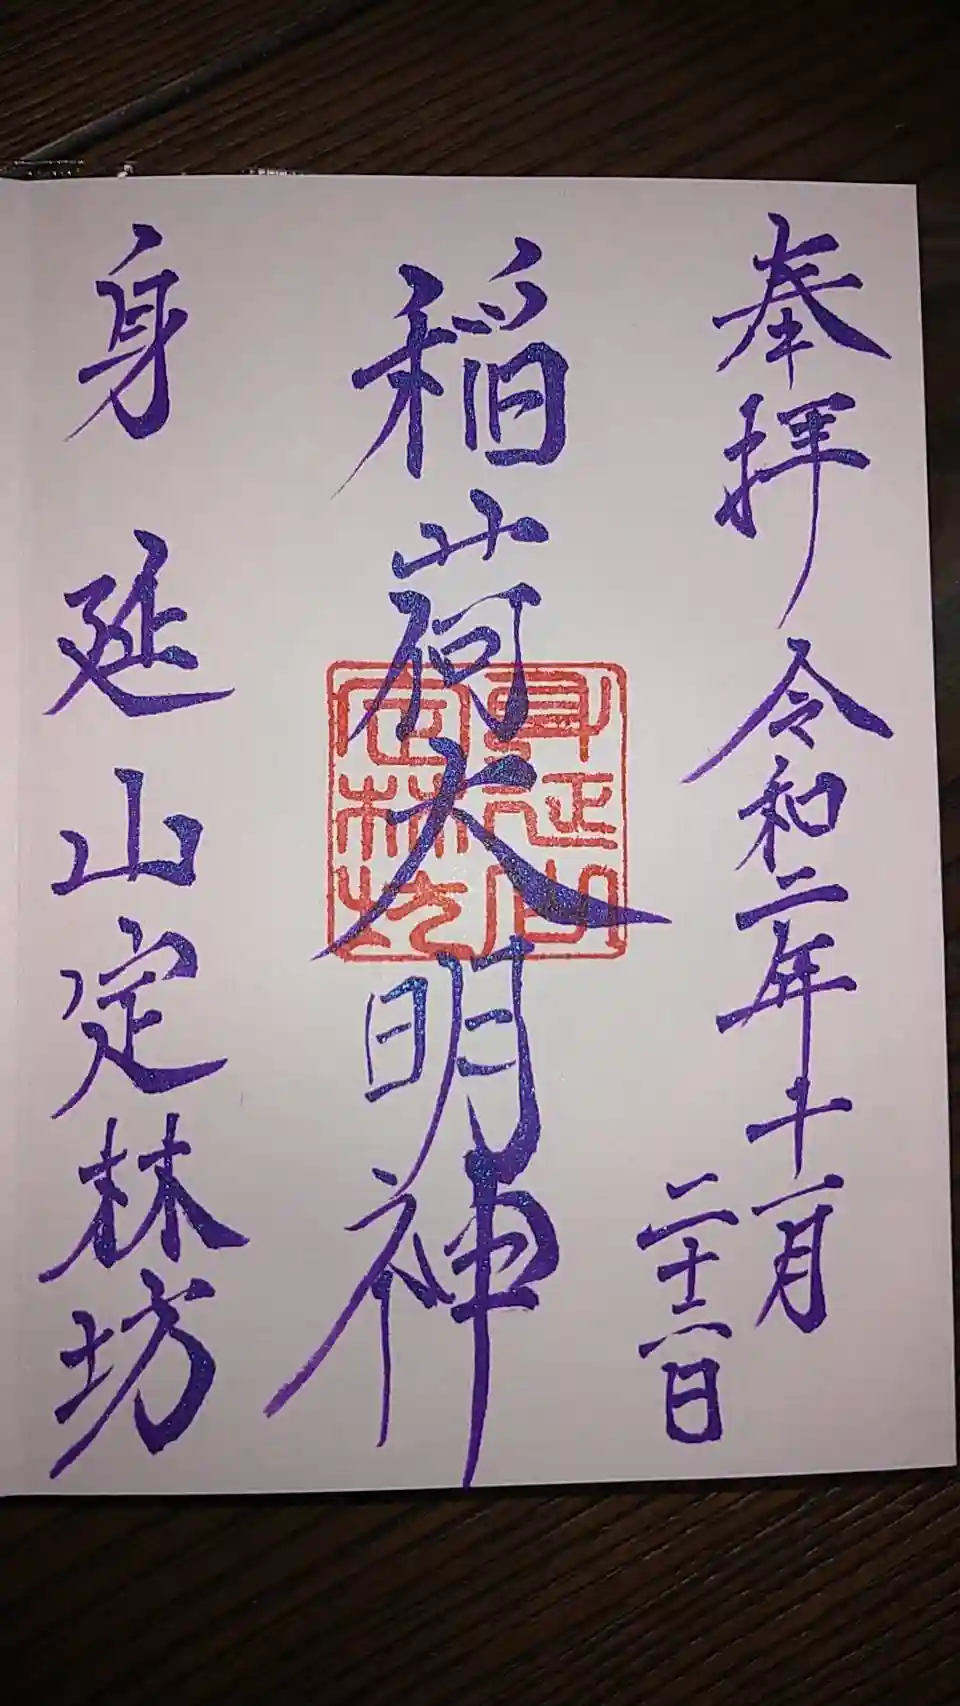 奉拝 令和二年十一月
二十六日
稲荷大明神
身延山
定林坊
身延山定林坊